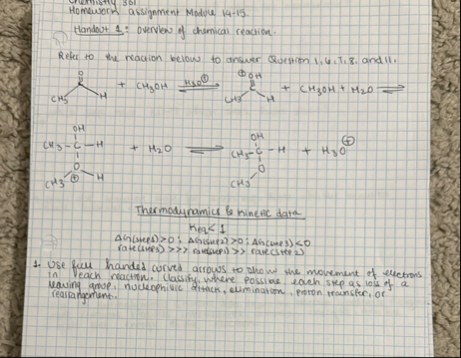 Chemistry 301
Homework assignment Module 14-15.
Handout 1: overview of chemical reaction.
Refer to the reaction below to answer Question 1, 6, 7, 8, and 11.
O
CH3 H + CH3OH H3O⊕ ⊕OH CH3 C H + CH3OH + H2O
OH
CH3-C-H + H2O
O
CH3 ⊕ H
OH
CH3-C-H + H3O⊕
O
CH3
Thermodynamics & kinetic data
Keq < 1
ΔG(step1)>0; ΔG(step2)>0; ΔG(step3)<0
rate(step3) >>> rate(step1) >> rate(step2)
1. Use full handed curved arrows to show the movement of electrons
in each reaction. Classify, where possible, each step as loss of a
leaving group, nucleophilic attack, elimination, proton transfer, or
rearrangement.